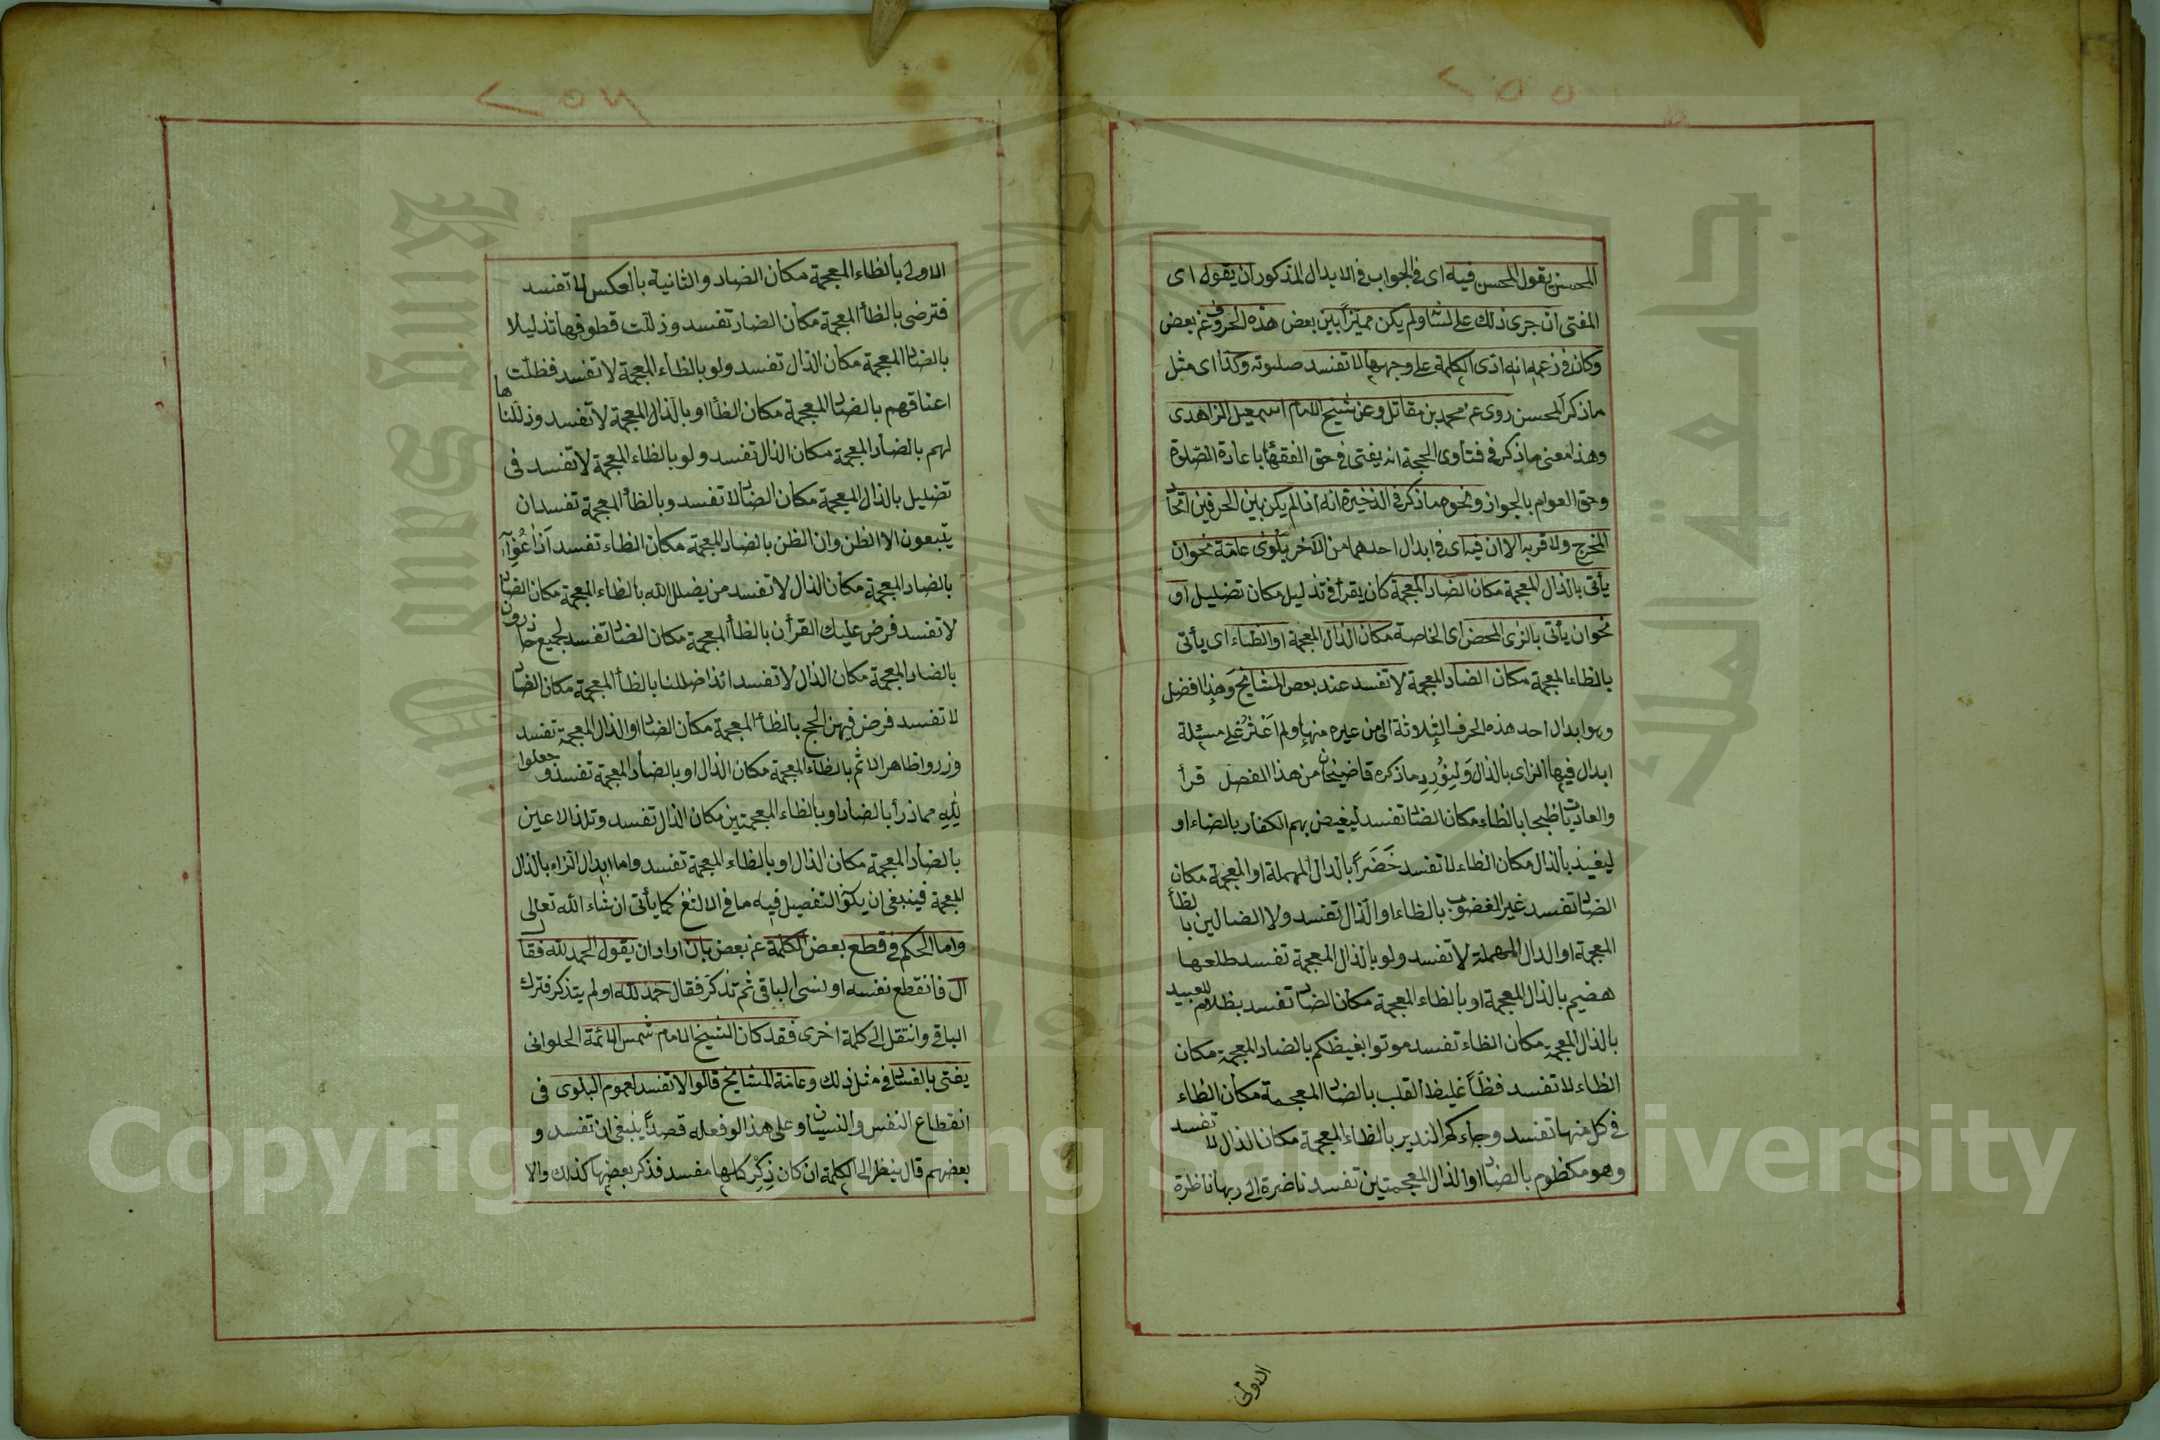 ٢٥٥
المحسن يقول المحسن فيه اى فى الجواب فى الابدال المذكور ان يقول اى
المفتى ان جرى ذلك على لسانه ولم يكن مميزاً بين بعض هذه الحروف عن بعض
وكان فى زعمه انه ادى الكلمة على وجهها لا تفسد صلوته وكذا اى مثل
ما ذكر المحسن روى عن محمد بن مقاتل وعن شيخ الامام اسمعيل الزاهدى
وهذا معنى ما ذكر فى فتاوى الحجة انه يفتى فى حق الفقهاء باعادة الصلوة
وحق العوام بالجواز ونحوه ما ذكر فى الذخيرة انه اذا لم يكن بين الحرفين اتحاد
المخرج ولا قربه الا ان فيه اى فى ابدال احدهما من الآخر بلوى عامة نحو ان
يأتى بالذال المعجمة مكان الضاد المعجمة كان يقرأ فى تذليل مكان تضليل او
نحو ان يأتى بالزى المحض اى الخاصة مكان الذال المعجمة او الظاء اى يأتى
بالظاء المعجمة مكان الضاد المعجمة لا تفسد عند بعض المشايخ وهذا فضل
وهو ابدال احد هذه الحرف الثلاثة الى من غيره منها ولم اعثر على مسئلة
ابدال فيها الزاى بالذال ولنورد ما ذكره قاضيخان من هذا المفصل قرأ
والعاديات ظبحا بالظاء مكان الضاد تفسد ليغيض بهم الكفار بالضاء او
ليغيذ بالذال مكان الظاء لا تفسد خضراً بالدال المهملة او المعجمة مكان
الضاد تفسد غير المغضوب بالظاء او الذال تفسد ولا الضالين بالظاء
المعجمة او الدال المهملة لا تفسد ولو بالذال المعجمة تفسد طلعها
هضيم بالذال المعجمة او بالظاء المعجمة مكان الضاد تفسد بظلام للعبيد
بالذال المعجمة مكان الظاء تفسد موتوا بغيظكم بالضاد المعجمة مكان
الظاء لا تفسد فظاً غليظ القلب بالضاد المعجمة مكان الظاء
فى كل منها تفسد وجاءكم النذير بالظاء المعجمة مكان الذال لا تفسد
وهو مكظوم بالضاد او الذال المعجمتين تفسد ناضرة الى ربها ناظرة
الاولى
٢٥٦
الاولى بالظاء المعجمة مكان الضاد والثانية بالعكس لا تفسد
فترضى بالظاء المعجمة مكان الضاد تفسد وذللت قطوفها تذليلا
بالضاد المعجمة مكان الذال تفسد ولو بالظاء المعجمة لا تفسد فظلت
اعناقهم بالضاد المعجمة مكان الظاء او بالذال المعجمة لا تفسد وذللناها
لهم بالضاد المعجمة مكان الذال تفسد ولو بالظاء المعجمة لا تفسد فى
تضليل بالذال المعجمة مكان الضاد لا تفسد وبالظاء المعجمة تفسد ان
يتبعون الا الظن وان الظن بالضاد المعجمة مكان الظاء تفسد
بالضاد المعجمة مكان الذال لا تفسد من يضلل الله بالظاء المعجمة مكان الضاد
لا تفسد فرض عليك القرأن بالظاء المعجمة مكان الضاد تفسد لجميع حاذرون
بالضاد المعجمة مكان الذال لا تفسد ائذا ضللنا بالظاء المعجمة مكان الضاد
لا تفسد فرض فيهن الحج بالظاء المعجمة مكان الضاد او الذال المعجمة تفسد
وذروا ظاهر الاثم بالظاء المعجمة مكان الذال او بالضاد المعجمة تفسد وجعلوا
لله مما ذرأ بالضاد او بالظاء المعجمتين مكان الذال تفسد وتلذ الاعين
بالضاد المعجمة مكان الذال او بالظاء المعجمة تفسد واما ابدال الزاء بالذال
المعجمة فينبغى ان يكون التفصيل فيه ما فى الالثغ كما يأتى ان شاء الله تعالى
واما الحكم فى قطع بعض الكلمة عن بعض بان اراد ان يقول الحمد لله فقال
ال فانقطع نفسه او نسى الباقى ثم تذكر فقال حمد لله او لم يتذكر فترك
الباقى وانتقل الى كلمة اخرى فقد كان الشيخ الامام شمس الائمة الحلوانى
يفتى بالفساد فى مثل ذلك وعامة المشايخ قالوا لا تفسد لعموم البلوى فى
انقطاع النفس والنسيان وعلى هذا لو فعله قصداً ينبغى ان تفسد و
بعضهم قال ينظر الى الكلمة ان كان ذكر كلها مفسد فذكر بعضها كذلك والا
Copyright © King Saud University
جامعة الملك سعود
King Saud University
1957